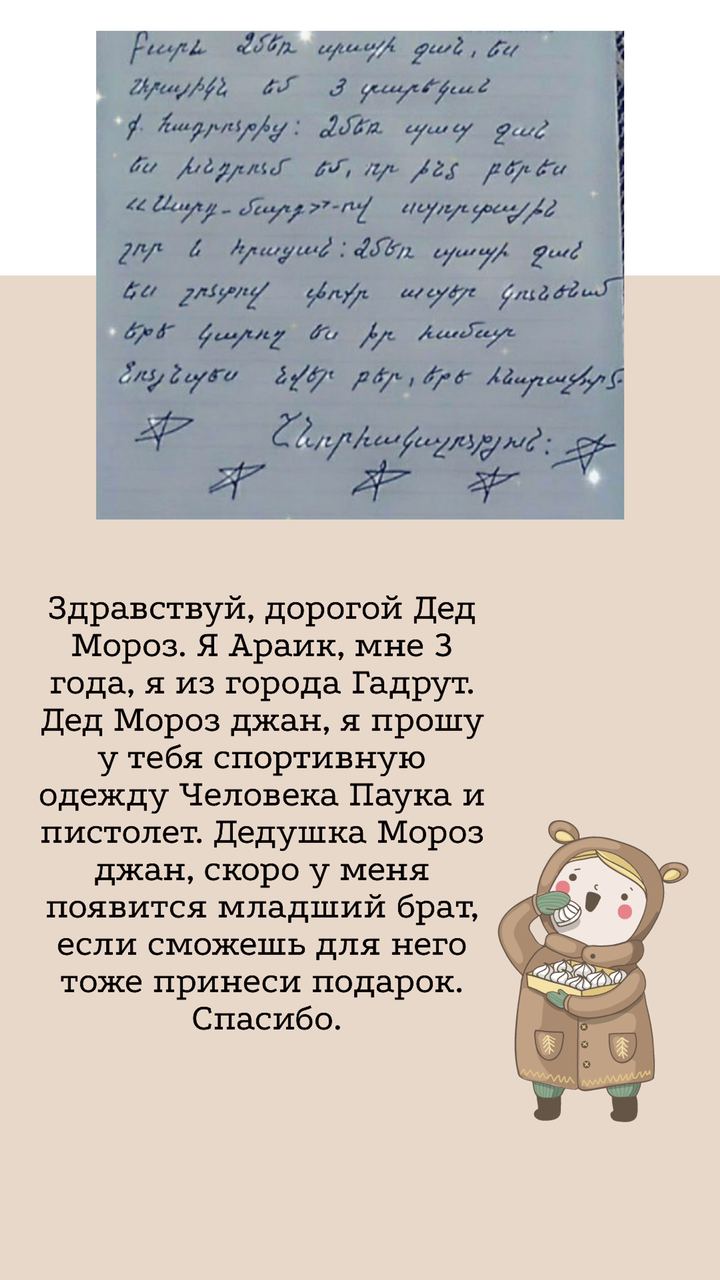 Բարև Ձմեռ պապի ջան, ես
Արայիկն եմ 3 տարեկան
ք. Հադրութից: Ձմեռ պապ ջան
ես խնդրում եմ, որ ինձ բերես
<<Սարդ-մարդ>>-ով սպորտային
շոր և հրացան: Ձմեռ պապի ջան
ես շուտով փոքր ախպեր կունենամ
եթե կարող ես իր համար
նույնպես նվեր բեր, եթե հնարավիրց
Շնորհակալություն:
Здравствуй, дорогой Дед
Мороз. Я Араик, мне 3
года, я из города Гадрут.
Дед Мороз джан, я прошу
у тебя спортивную
одежду Человека Паука и
пистолет. Дедушка Мороз
джан, скоро у меня
появится младший брат,
если сможешь для него
тоже принеси подарок.
Спасибо.